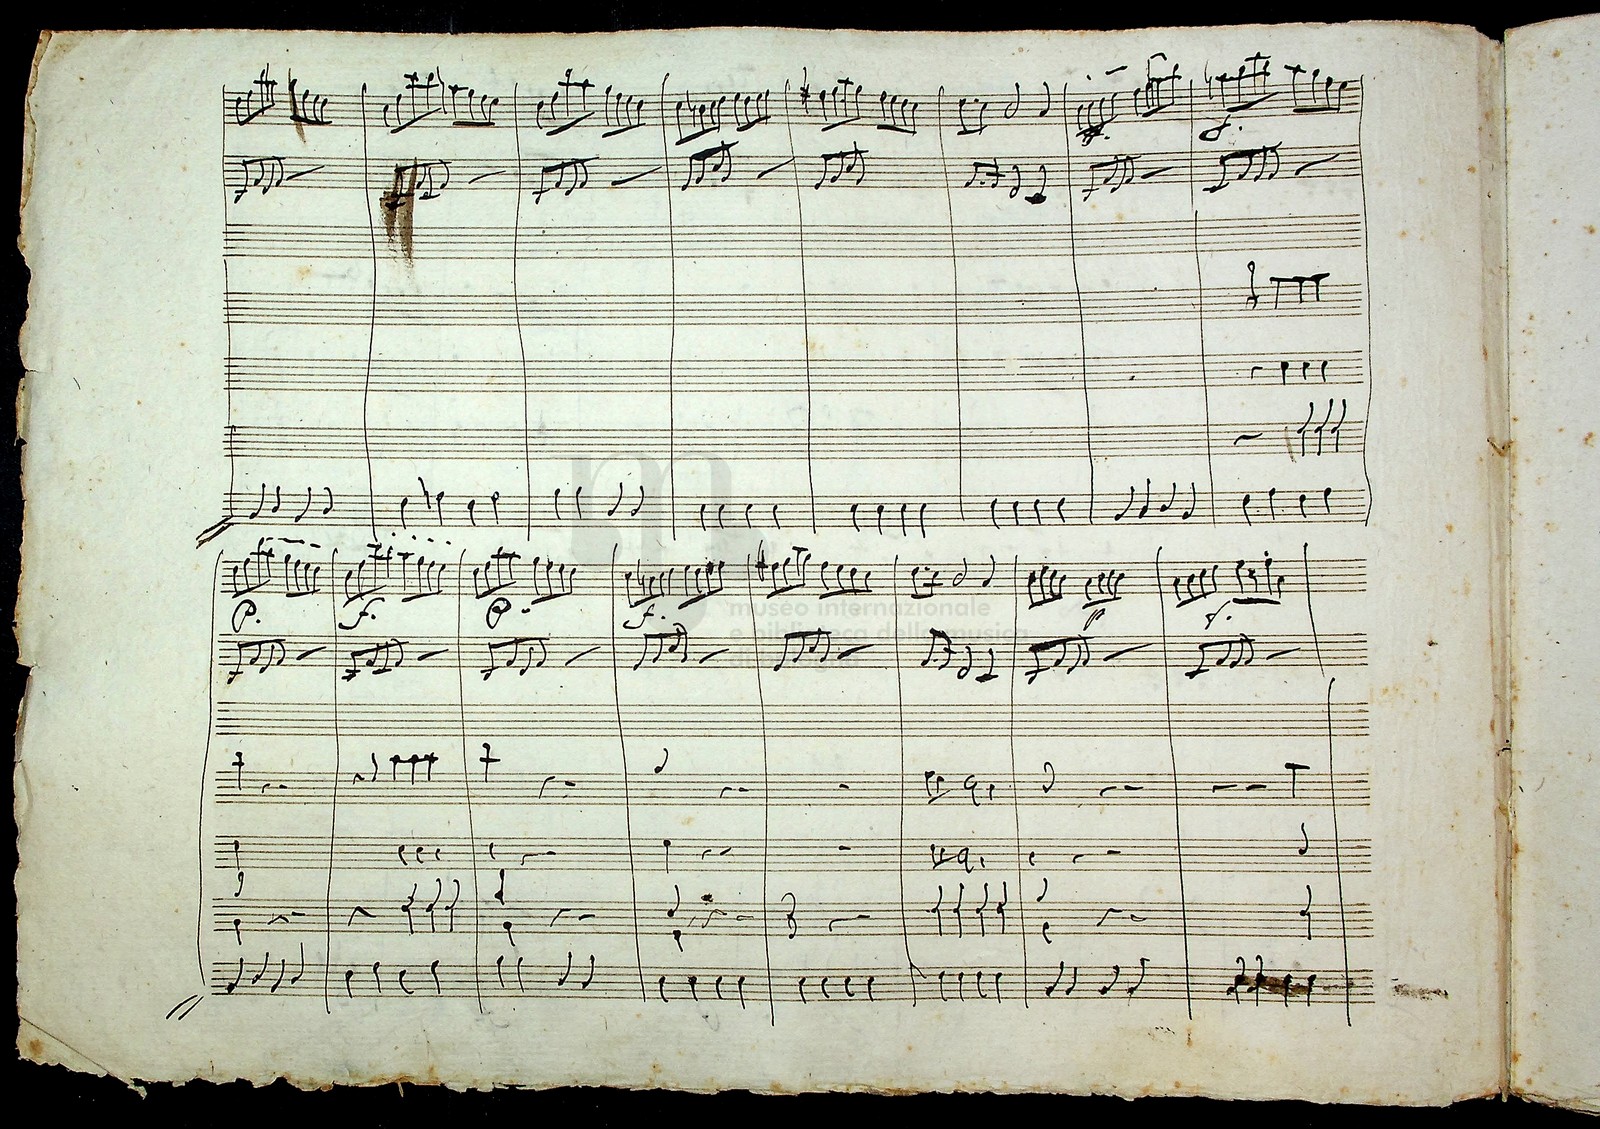 f.
p. f. p. f. p f.
museo internazionale
e biblioteca della musica
di bologna